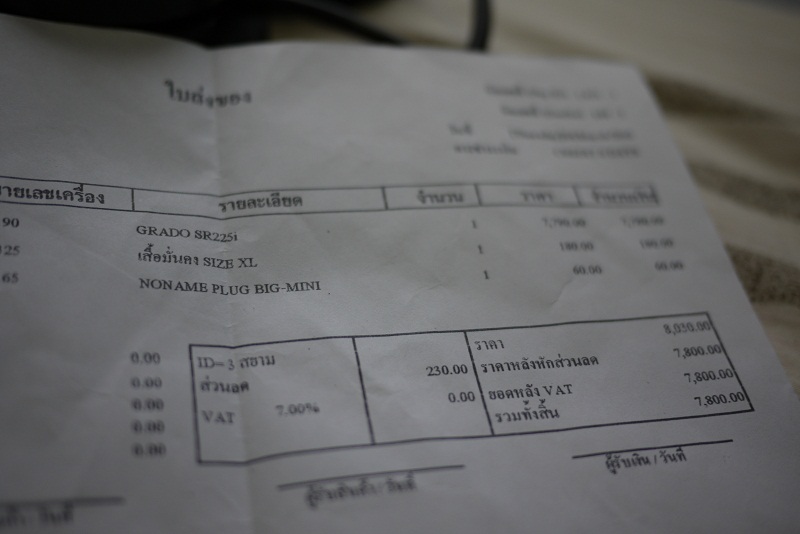 ใบส่งของ
ายเลขเครื่อง รายละเอียด จำนวน ราคา จำนวนเงิน
90 GRADO SR225i 1 7,790.00 7,790.00
125 เสื้อมั่นคง SIZE XL 1 180.00 180.00
65 NONAME PLUG BIG-MINI 1 60.00 60.00
0.00 ID= 3 สยาม ราคา 8,030.00
0.00 ส่วนลด 230.00 ราคาหลังหักส่วนลด 7,800.00
0.00 VAT 7.00% 0.00 ยอดหลัง VAT 7,800.00
0.00 รวมทั้งสิ้น 7,800.00
0.00
ผู้รับสินค้า / วันที่ ผู้รับเงิน / วันที่